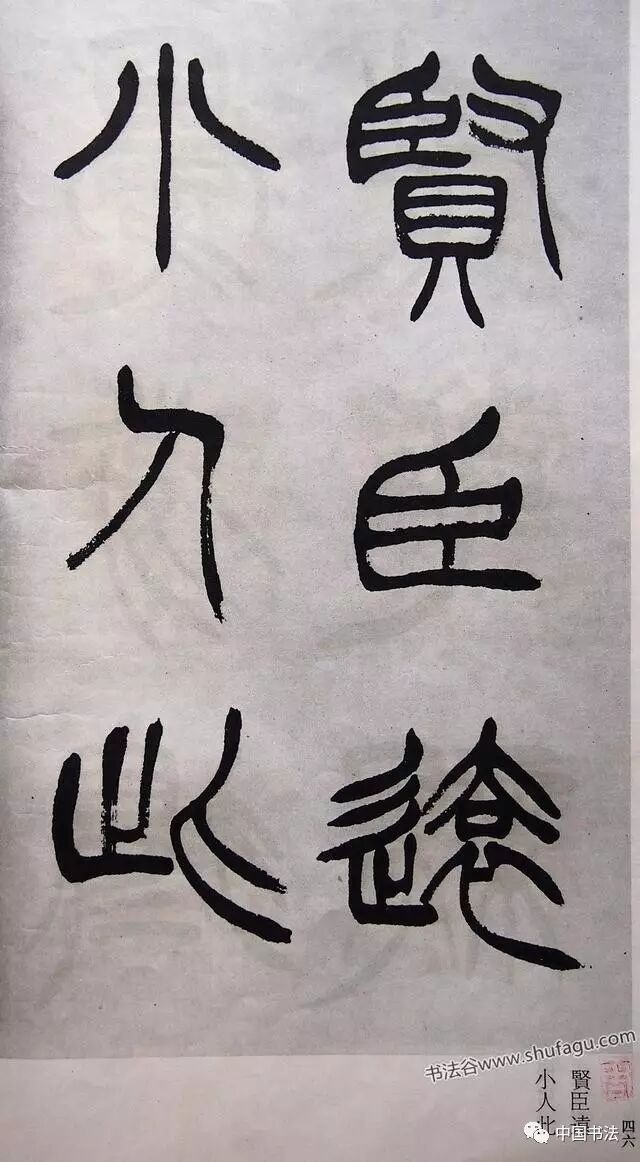 賢臣遠
小人此
书法谷www.shufagu.com
賢臣遠
小人此
四六
中国书法